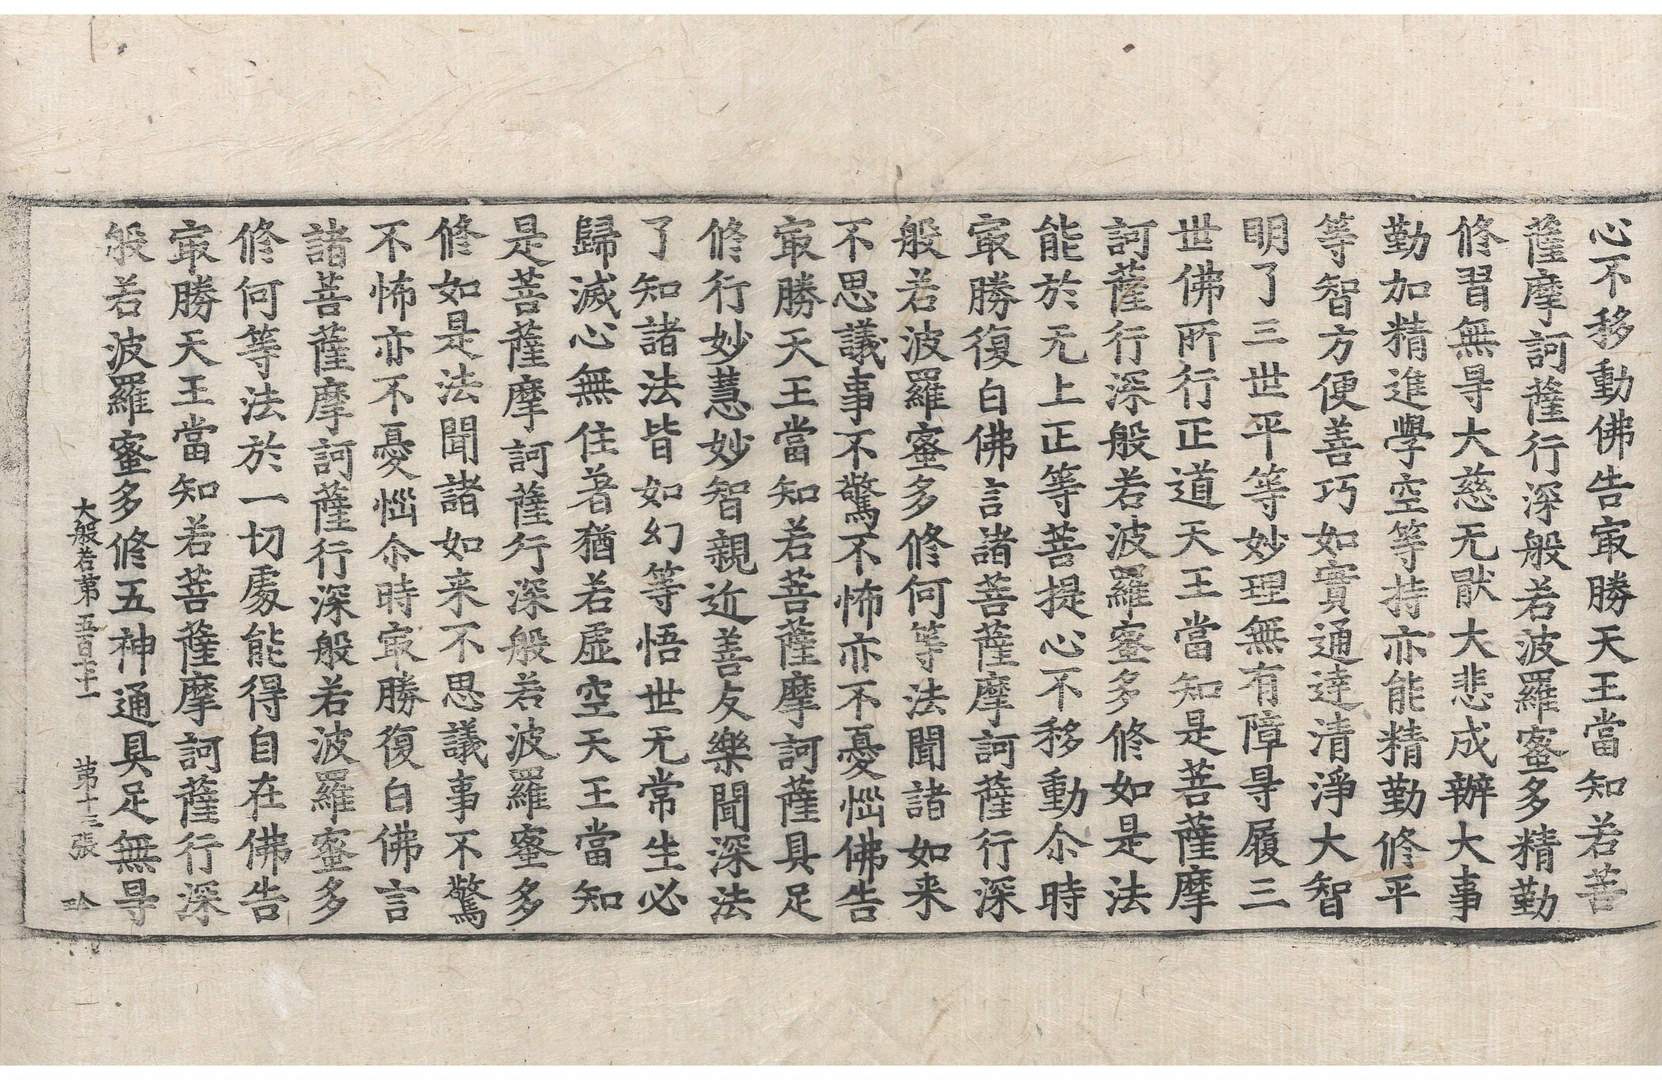 心不移動佛告㝡勝天王當知若菩
薩摩訶薩行深般若波羅蜜多精勤
修習無㝵大慈无猒大悲成辦大事
勤加精進學空等持亦能精勤修平
等智方便善巧如實通達清淨大智
明了三世平等妙理無有障㝵履三
世佛所行正道天王當知是菩薩摩
訶薩行深般若波羅蜜多修如是法
能於无上正等菩提心不移動尒時
㝡勝復白佛言諸菩薩摩訶薩行深
般若波羅蜜多修何等法聞諸如来
不思議事不驚不怖亦不憂惱佛告
㝡勝天王當知若菩薩摩訶薩具足
修行妙慧妙智親近善友樂聞深法
了知諸法皆如幻等悟世无常生必
歸滅心無住著猶若虛空天王當知
是菩薩摩訶薩行深般若波羅蜜多
修如是法聞諸如来不思議事不驚
不怖亦不憂惱尒時㝡勝復白佛言
諸菩薩摩訶薩行深般若波羅蜜多
修何等法於一切處能得自在佛告
㝡勝天王當知若菩薩摩訶薩行深
般若波羅蜜多修五神通具足無㝵
大般若第五百七十一 第十三張